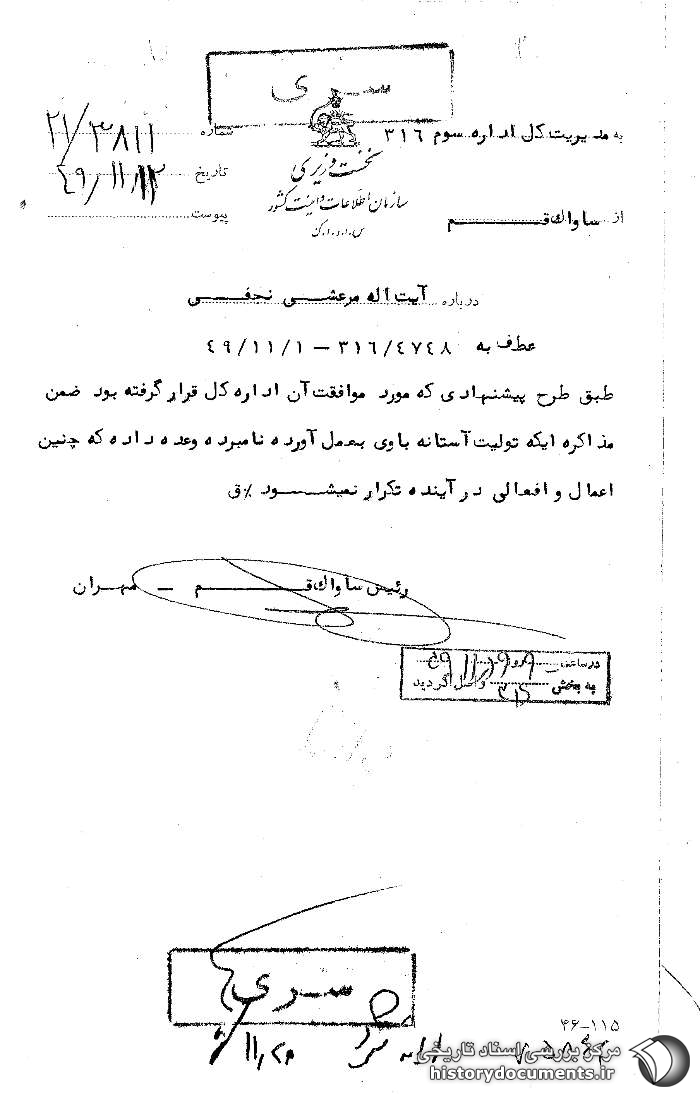 سری
به مدیریت کل اداره سوم ۳۱۶
شماره ۲۱/۳۸۱۱
نخست وزیری
تاریخ ۴۹/۱۱/۱۲
سازمان اطلاعات و امنیت کشور
از ساواک قم
پیوست
س.ا.و.ا.ک
درباره آیت اله مرعشی نجفی
عطف به ۳۱۶/۴۷۴۸ – ۴۹/۱۱/۱
طبق طرح پیشنهادی که مورد موافقت آن اداره کل قرار گرفته بود ضمن
مذاکره ایکه تولیت آستانه باوی بعمل آورده نامبرده وعده داده که چنین
اعمال و افعالی در آینده تکرار نمیشود ٪ ق
رئیس ساواک قم – مهران
در ساعت روز
به بخش ۳۱۶ واصل گردید
سری
۴۶-۱۱۵
مرکز بررسی اسناد تاریخی
historydocuments.ir